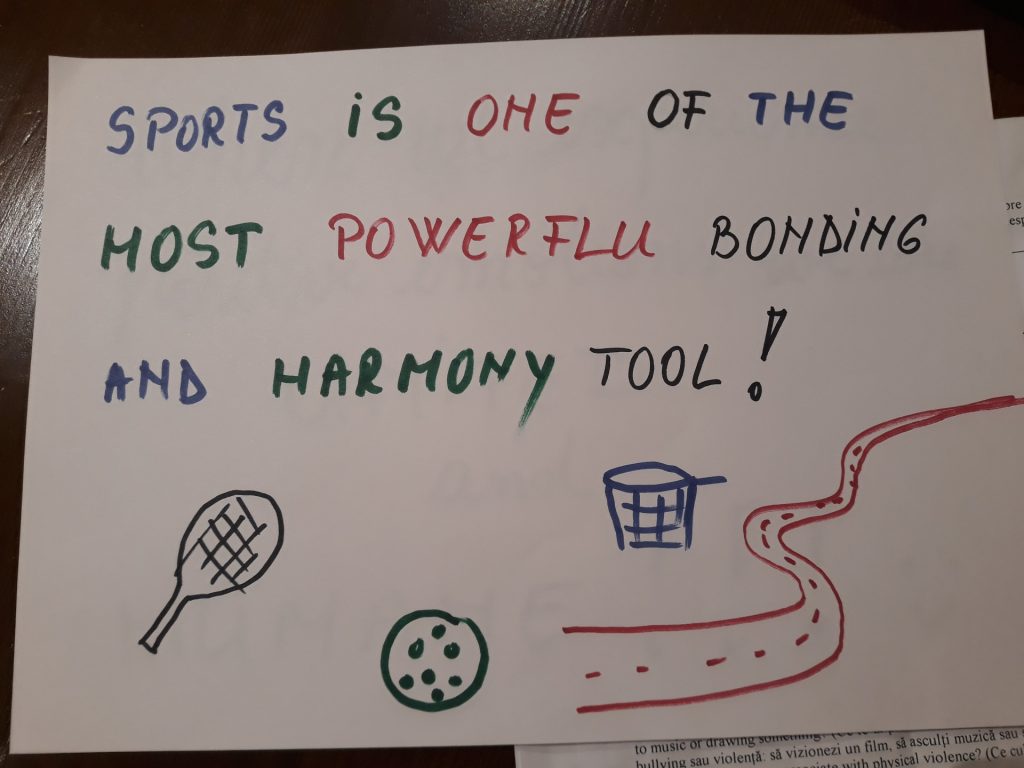 SPORTS iS ONE OF THE
MOST POWERFLU BONDiNG
AND HARMONY TOOL!
to music or drawing something? (Ce
bullying sau violență: să vizionezi un film, să asculți muzică sau
with physical violence? (Ce cu